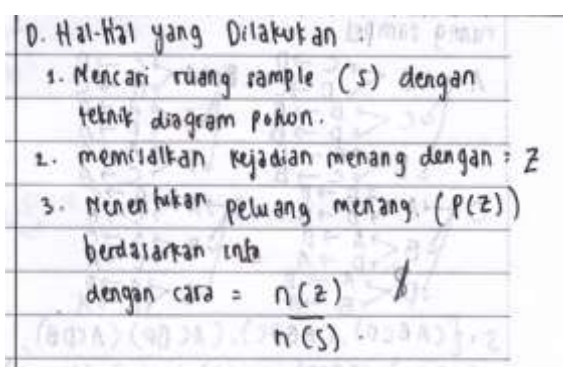 D. Hal-Hal yang Dilakukan :
1. Mencari ruang sample (S) dengan
teknik diagram pohon.
2. memisalkan kejadian menang dengan : Z
3. Menentukan peluang menang. (P(Z))
berdasarkan info
dengan cara = n(z)
n(S) .